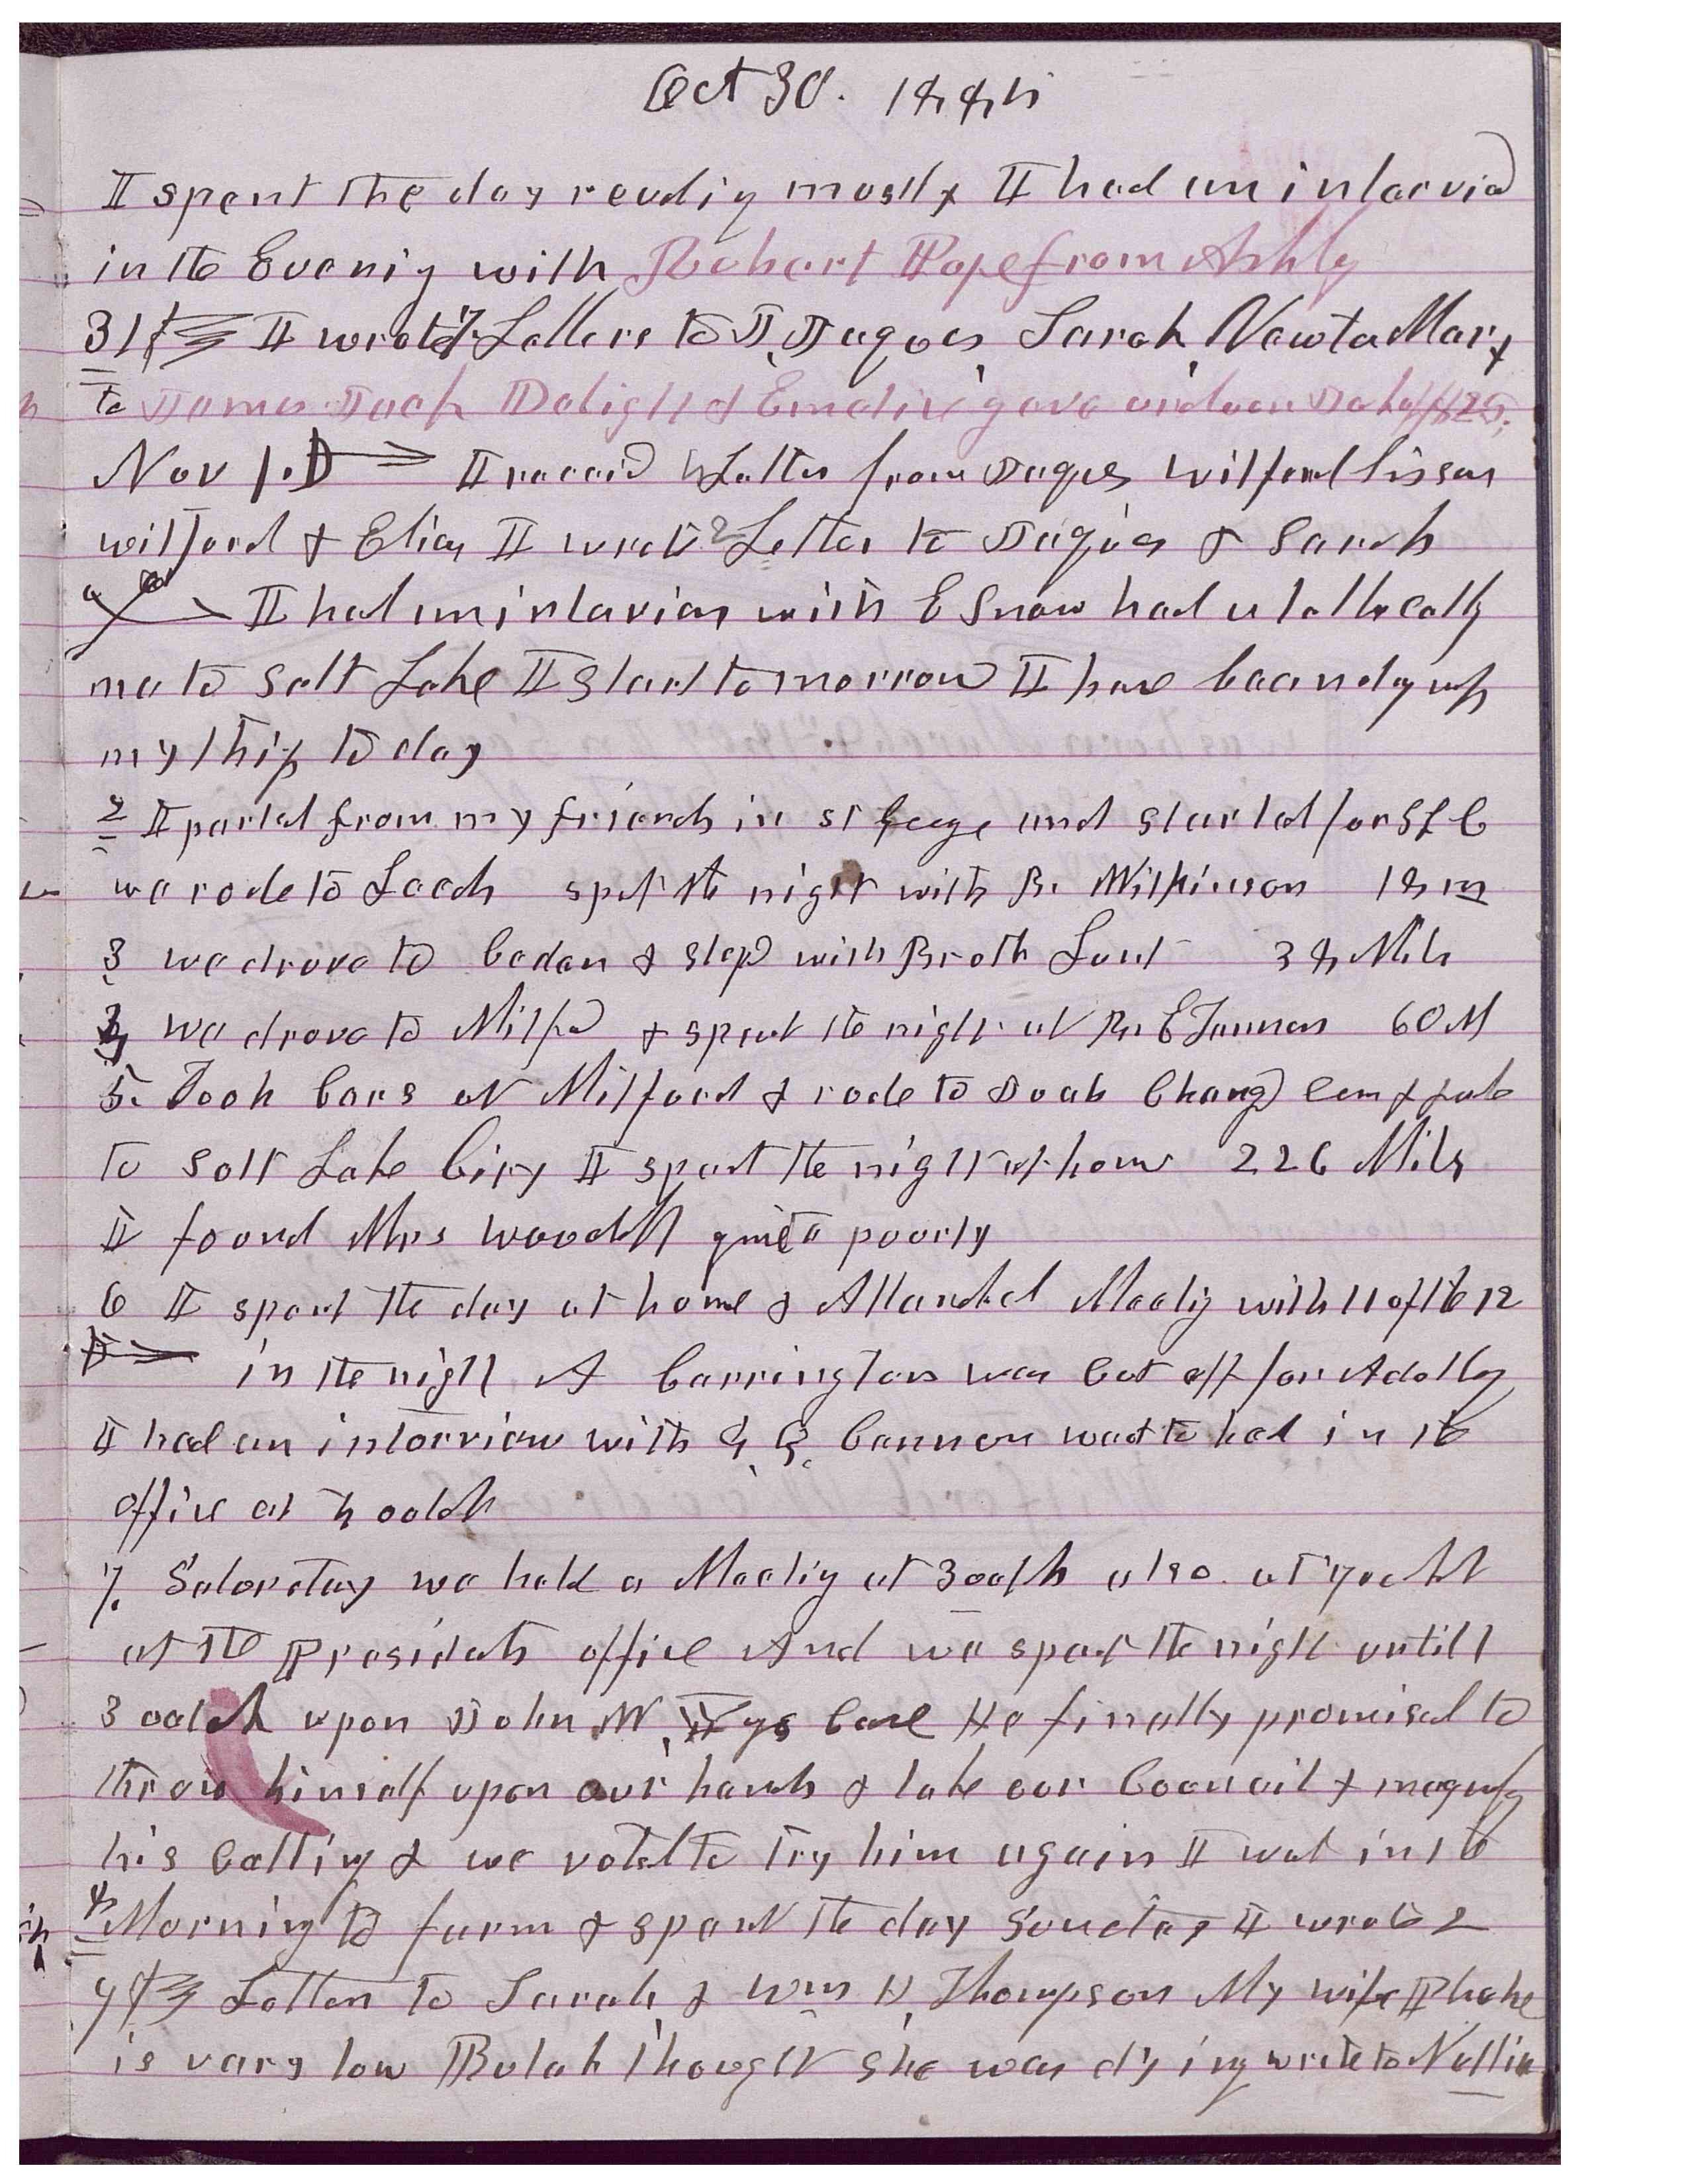 Oct 30. 1885
I spent the day readig mostly I had an intervied
in the Evenig with Robert Pope from Ashly
31 I wrote 7 Letters to Jaques Sarah, Newton Mary
to James Jack Delight & Emeline gave
Nov 1. I receid 4 Letter from Jaques Wilford his son
wilford & Eliza I wrote 2 Letter to Jaques & Sarah
I had an interview with E Snow had a telle calling
me to Salt Lake I start to morrow I have been up
my this to day
2 I parted from my friends in St Geoge and started for SLC
we rode to Leeds spet the night with Br. Wilkinson 18 m
3 we drove to Cedar & stopd with Broth Lunt 38 Mils
4 we drove to Milfd & spent the night at Br E Tanner 60 M
5. Took Cars at Milford & rode to Juab Changd
to Salt Lake City I spent the night at home 226 Mils
I found Mrs Woodff quite poorly
6 I spent the day at home & Attended Meetig with 11 of the 12
in the night A Carrington was Cut off for Adultry
I had an interview with G. Q. Cannon went to bed in the
office at 4 oclok
7. Saturday we held a Meetig at 3 oclk also at 7 oclk
at the Presidets office And we spent the night untill
3 oclok upon John W, Ygs Case He finally promised to
throw himself upon our hands & take our Council & magnfy
his Calling & we voted to try him again I wet in the
8 Morning to farm & spent the day Sunday I wrote 2
9 Letters to Sarah & Wm H, Thompson My wife Phebe
is vary low Bulah thought she was dying write to Nellie